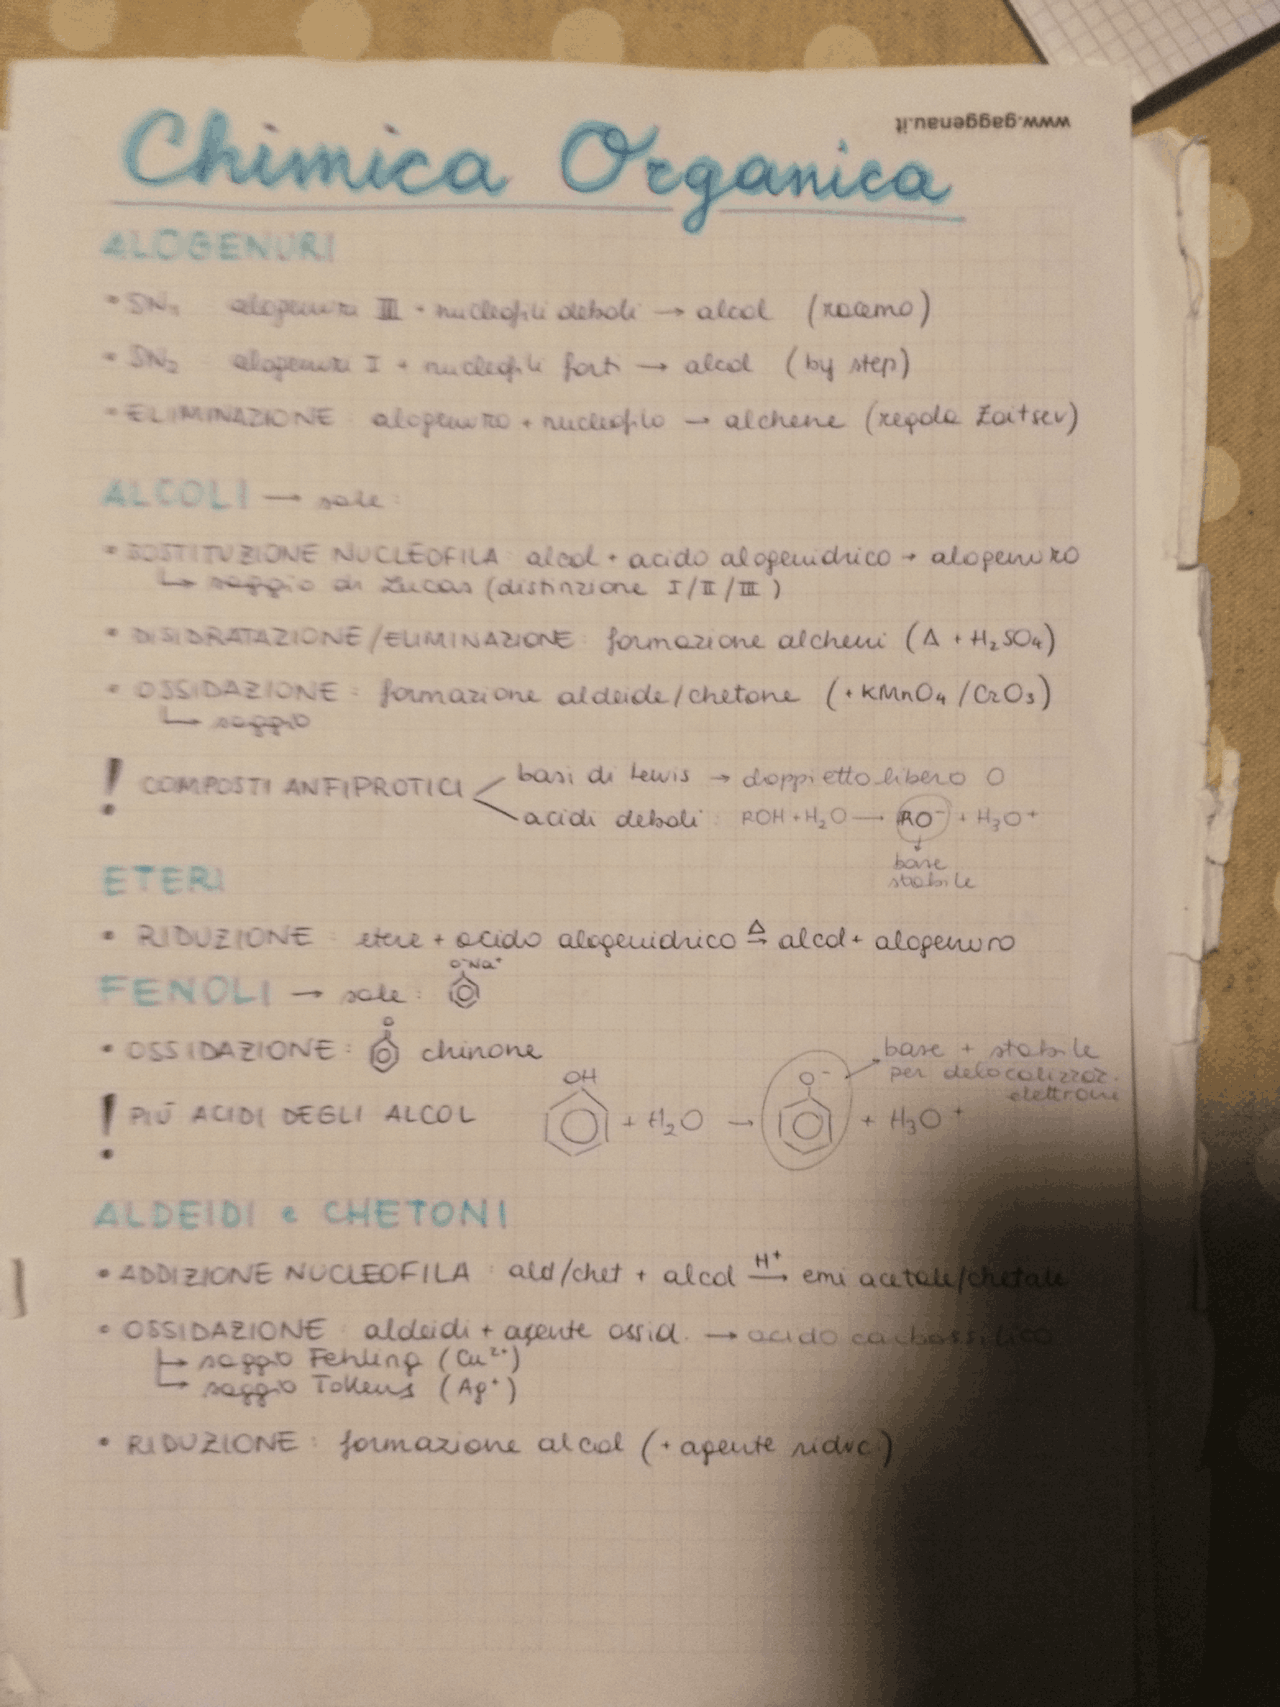 www.gaggenau.it
Chimica Organica
ALOGENURI
• SN1 alogenuri III + nucleofili deboli → alcol (racemo)
• SN2 alogenuri I + nucleofili forti → alcol (by step)
• ELIMINAZIONE : alogenuro + nucleofilo → alchene (regola Zaitsev)
ALCOLI → sale :
• SOSTITUZIONE NUCLEOFILA : alcol + acido alogenidrico → alogenuro
↳ saggio di Lucas (distinzione I/II/III)
• DISIDRATAZIONE/ELIMINAZIONE : formazione alcheni (Δ + H₂SO₄)
• OSSIDAZIONE : formazione aldeide/chetone (+ KMnO₄ / CrO₃)
↳ saggio
! COMPOSTI ANFIPROTICI
basi di Lewis → doppietto libero O
acidi deboli : ROH + H₂O → RO⁻ + H₃O⁺
base
stabile
ETERI
• RIDUZIONE : etere + acido alogenidrico Δ→ alcol + alogenuro
FENOLI → sale : O⁻Na⁺
• OSSIDAZIONE : O chinone
! PIÙ ACIDI DEGLI ALCOL OH + H₂O → O⁻ + H₃O⁺
base + stabile
per delocalizzaz.
elettroni
ALDEIDI e CHETONI
• ADDIZIONE NUCLEOFILA : ald/chet + alcol H⁺→ emi acetale/chetale
• OSSIDAZIONE : aldeidi + agente ossid. → acido carbossilico
↳ saggio Fehling (Cu²⁺)
↳ saggio Tollens (Ag⁺)
• RIDUZIONE : formazione alcol (+ agente riduc.)